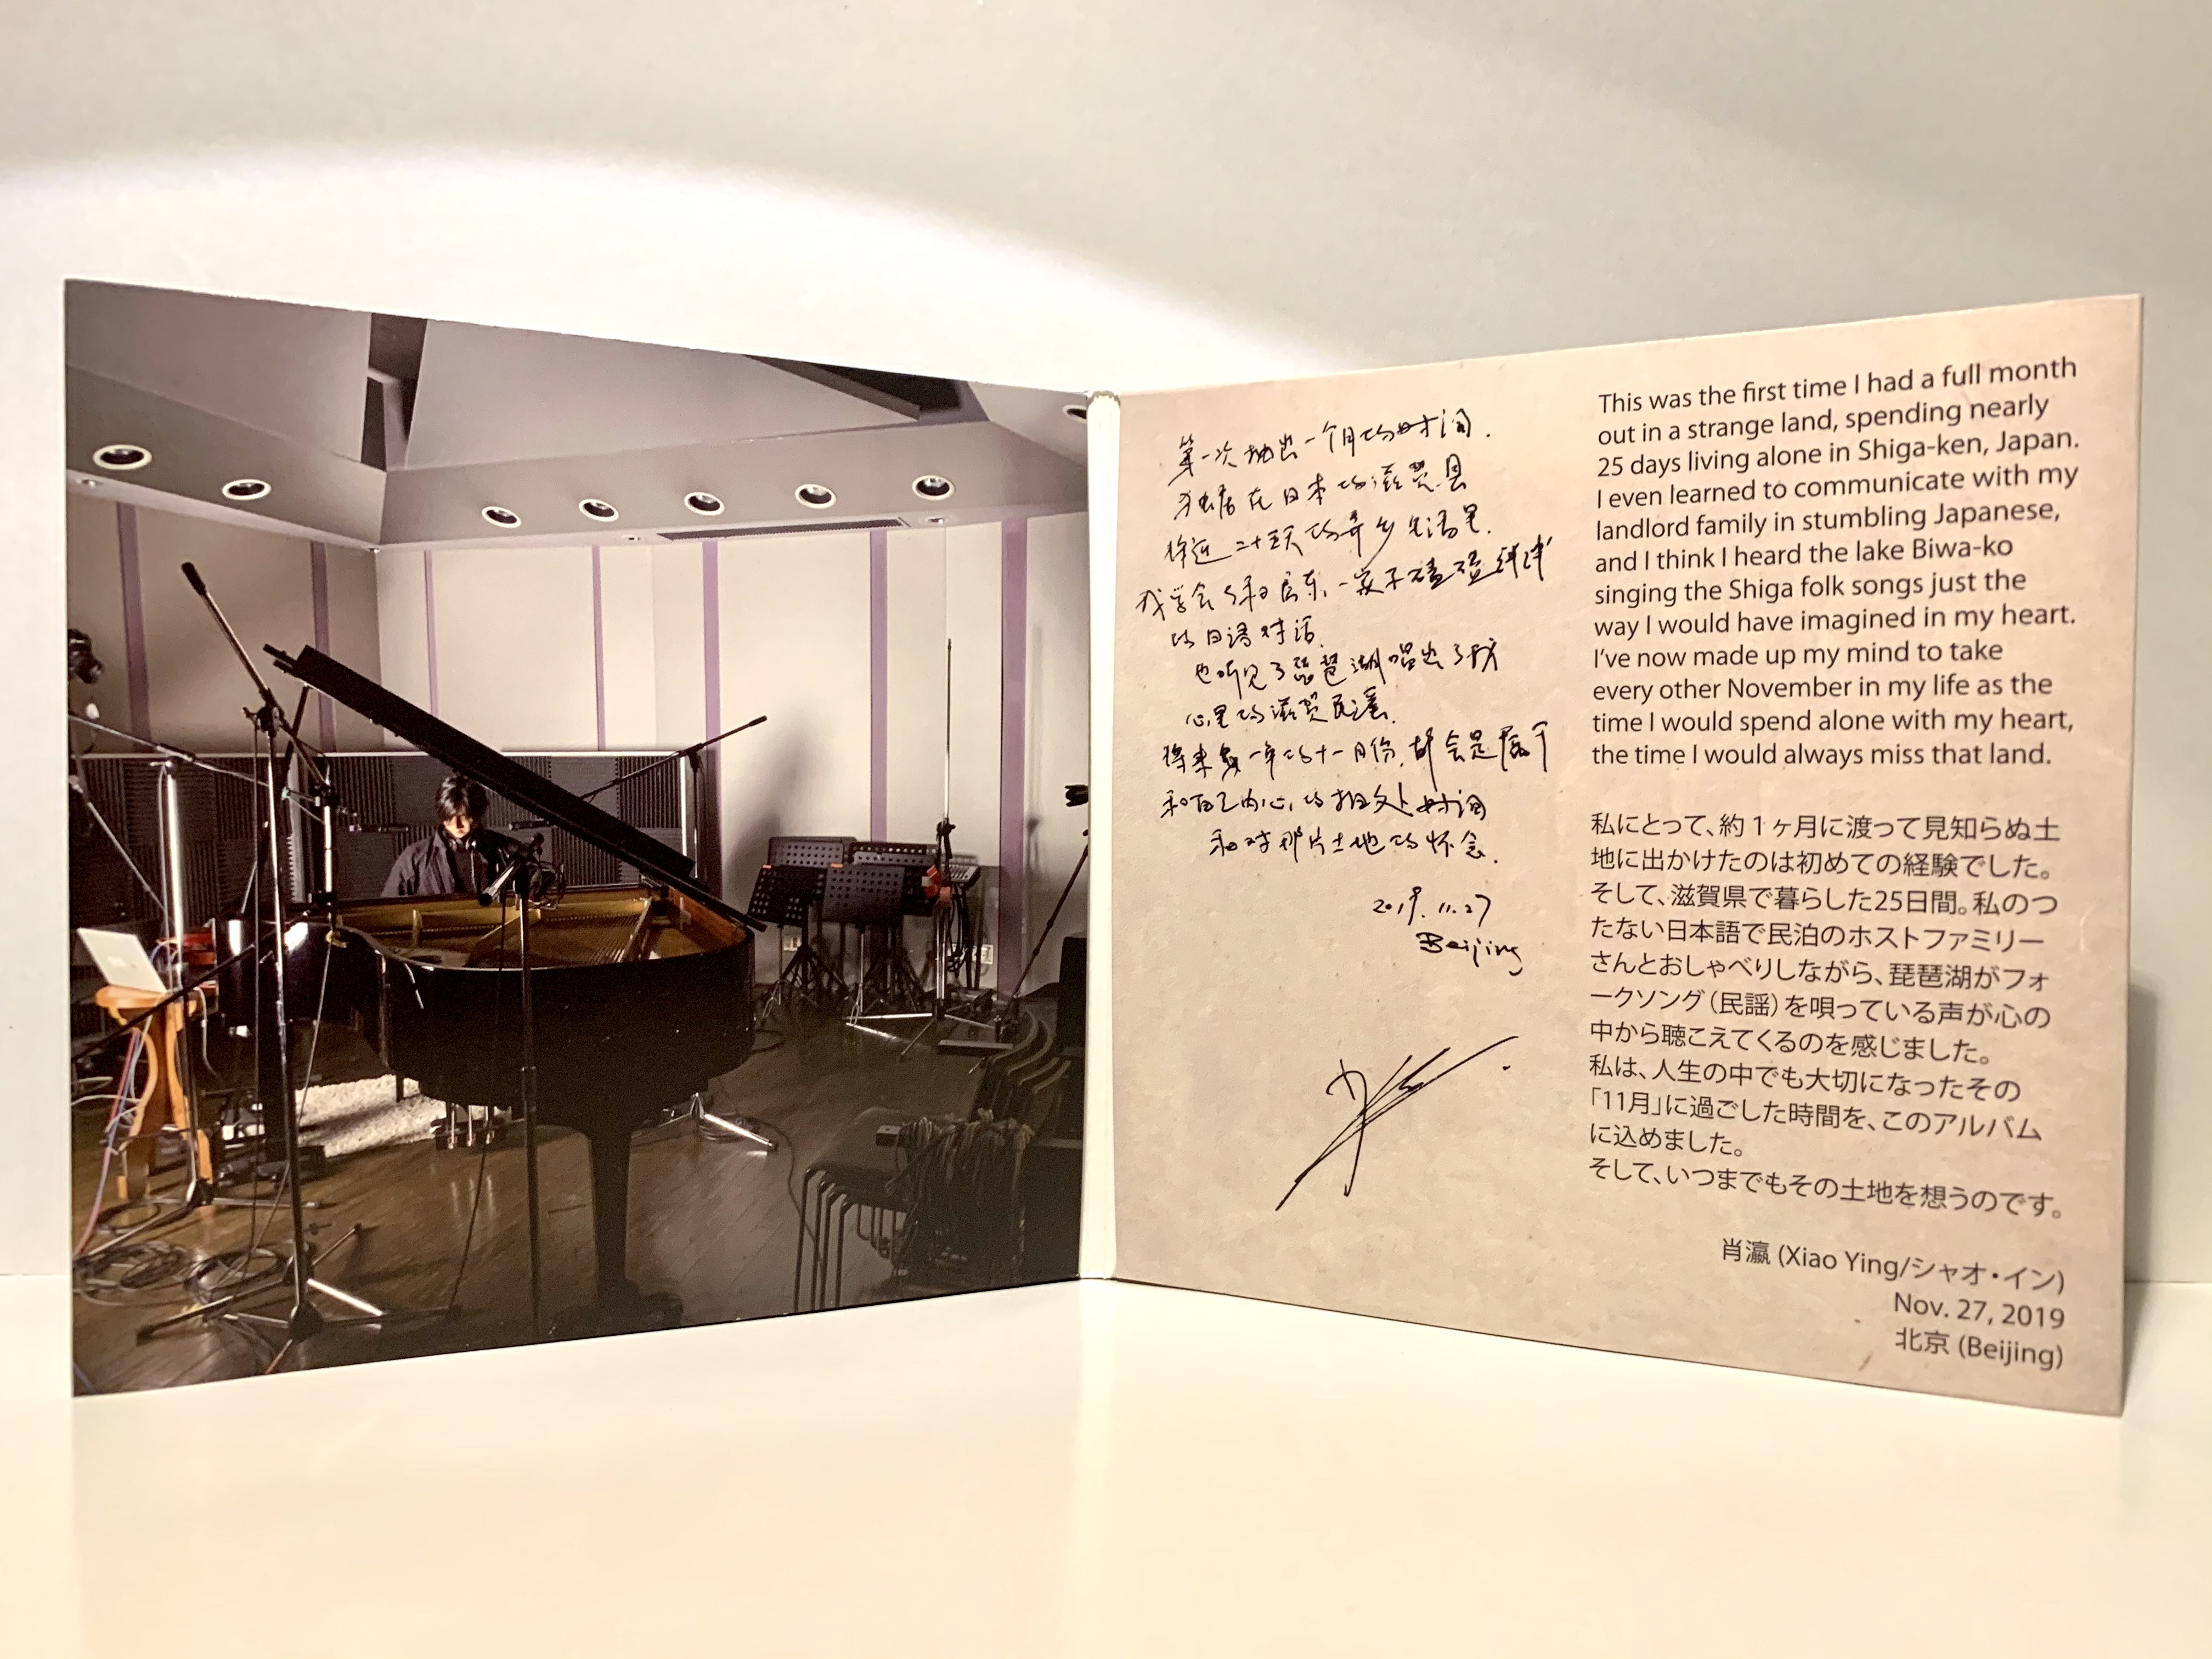 第一次抽出一个月的时间.
独居在日本的滋贺县
将近二十五天的异乡生活里.
我学会了和房东一家子磕磕绊绊
的日语对话.
也听见了琵琶湖唱出了我
心里的滋贺民谣.
将来每一年的十一月份,都会是属于
和自己内心的相处时间
和对那片土地的怀念.
2019.11.27
Beijing
This was the first time I had a full month
out in a strange land, spending nearly
25 days living alone in Shiga-ken, Japan.
I even learned to communicate with my
landlord family in stumbling Japanese,
and I think I heard the lake Biwa-ko
singing the Shiga folk songs just the
way I would have imagined in my heart.
I've now made up my mind to take
every other November in my life as the
time I would spend alone with my heart,
the time I would always miss that land.
私にとって、約1ヶ月に渡って見知らぬ土
地に出かけたのは初めての経験でした。
そして、滋賀県で暮らした25日間。私のつ
たない日本語で民泊のホストファミリー
さんとおしゃべりしながら、琵琶湖がフォ
ークソング(民謡)を唄っている声が心の
中から聴こえてくるのを感じました。
私は、人生の中でも大切になったその
「11月」に過ごした時間を、このアルバム
に込めました。
そして、いつまでもその土地を想うのです。
肖瀛 (Xiao Ying/シャオ・イン)
Nov. 27, 2019
北京 (Beijing)